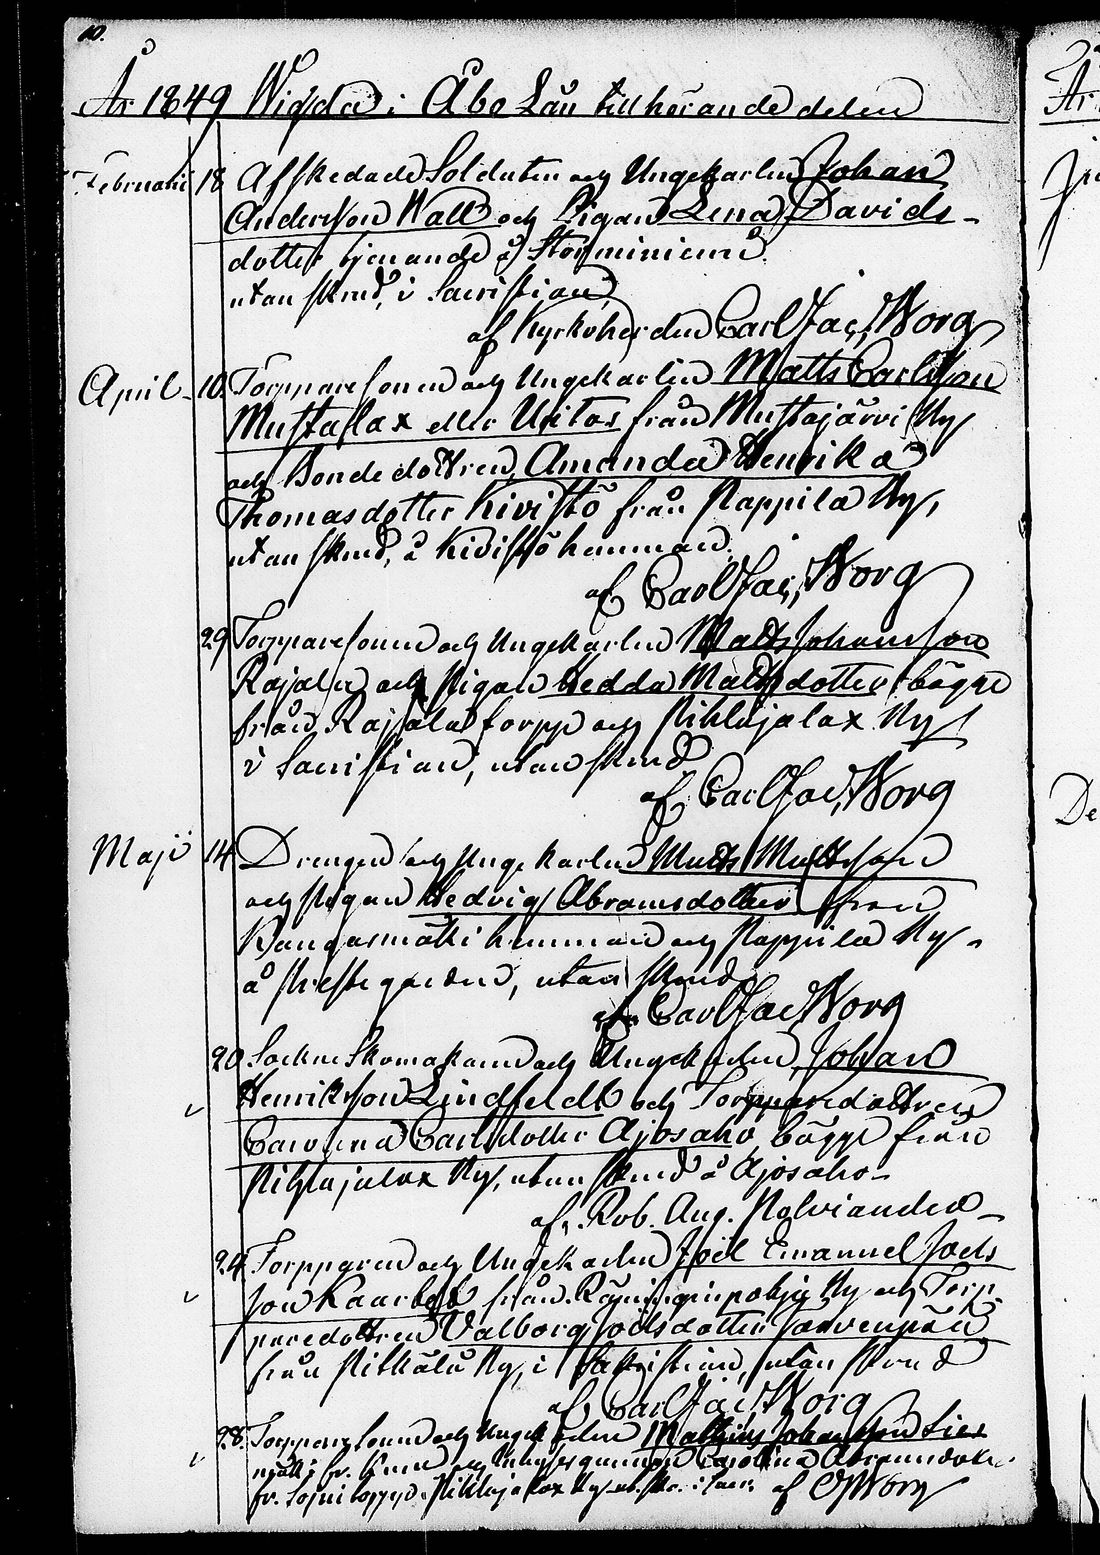 10.
År 1849 Wigda i Åbo Län tillhörande delen
Februarii 18 Afskedade Soldaten och Ungekarlen Johan
Andersson Wall och Pigan Lena Davids-
dotter tjenande å Storminiemi
utan skrud, i Sacristian,
af Kyrkoherden Carl Jac. Worg
April 10. Torparesonen och Ungekarlen Matts Carlsson
Mustalax eller Uritas från Mustajärvi By
och Bondedottren Amanda Henrika
Thomasdotter Kivistö från Pappila By,
utan skrud, å Kivistö hemman.
af Carl Jac. Worg
29 Torpparesonen och Ungekarlen Matts Johansson
Rajala och Pigan Hedda Mattsdotter bägge
från Rajala torpp och Pihlajalax By
i Sacristian, utan skrud
af Carl Jac. Worg
Maji 14 Drengen och Ungekarlen Matts Mattsson
och Pigan Hedvig Abramsdotter från
Kangasmäki hemman och Pappila By
å Prestegården, utan skrud
af Carl Jac Worg
20 Sockne Skomakaren och Ungekarlen Johan
Henriksson Lindfeldt och Torpparedottren
Carolina Carlsdotter Ajosaho bägge från
Pihlajalax By, utan skrud å Ajosaho
af Rob. Aug. Polviander
24 Torpparen och Ungekarlen Joel Emanuel Joels
son från By och Torp-
paredottren Valborg Joelsdotter Sarvenpää
från Pitkälä By, i Sakristian, utan skrud
af Carl Jac Worg
28. Torpparesonen och Ungekarlen Mathias Johansson
fr. och Carolina
fr. Pihlajalax By ut. skr. i Sacr. af CJWorg
År
De